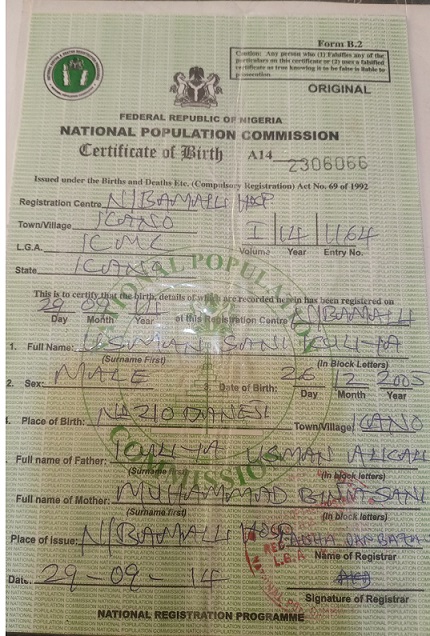 Form B.2
Caution: Any person who (1) Falsifies any of the
particulars on this certificate or (2) uses a falsified
certificate as true knowing it to be false is liable to
prosecution
ORIGINAL
FEDERAL REPUBLIC OF NIGERIA
NATIONAL POPULATION COMMISSION
Certificate of Birth A14 2306066
Issued under the Births and Deaths Etc. (Compulsory Registration) Act No. 69 of 1992
Registration Centre N/BAMALLI
Town/Village KANO I 14 1164
L.G.A. KMC Volume Year Entry No.
State KANO
This is to certify that the birth, details of which are recorded herein has been registered on
29 09 14 at this Registration Centre N/BAMALLI
Day Month Year
1. Full Name: USMAN SANI
(Surname First) (In Block Letters)
2. Sex: MALE Date of Birth: 26 12 2005
Day Month Year
Place of Birth: Town/Village KANO
Full name of Father: USMAN
(Surname first) (In block letters)
Full name of Mother: MUHAMMAD SANI
(Surname first) (In block letters)
Place of Issue: N/BAMALLI HOSP
Name of Registrar
Date: 29-09-14
Signature of Registrar
NATIONAL REGISTRATION PROGRAMME